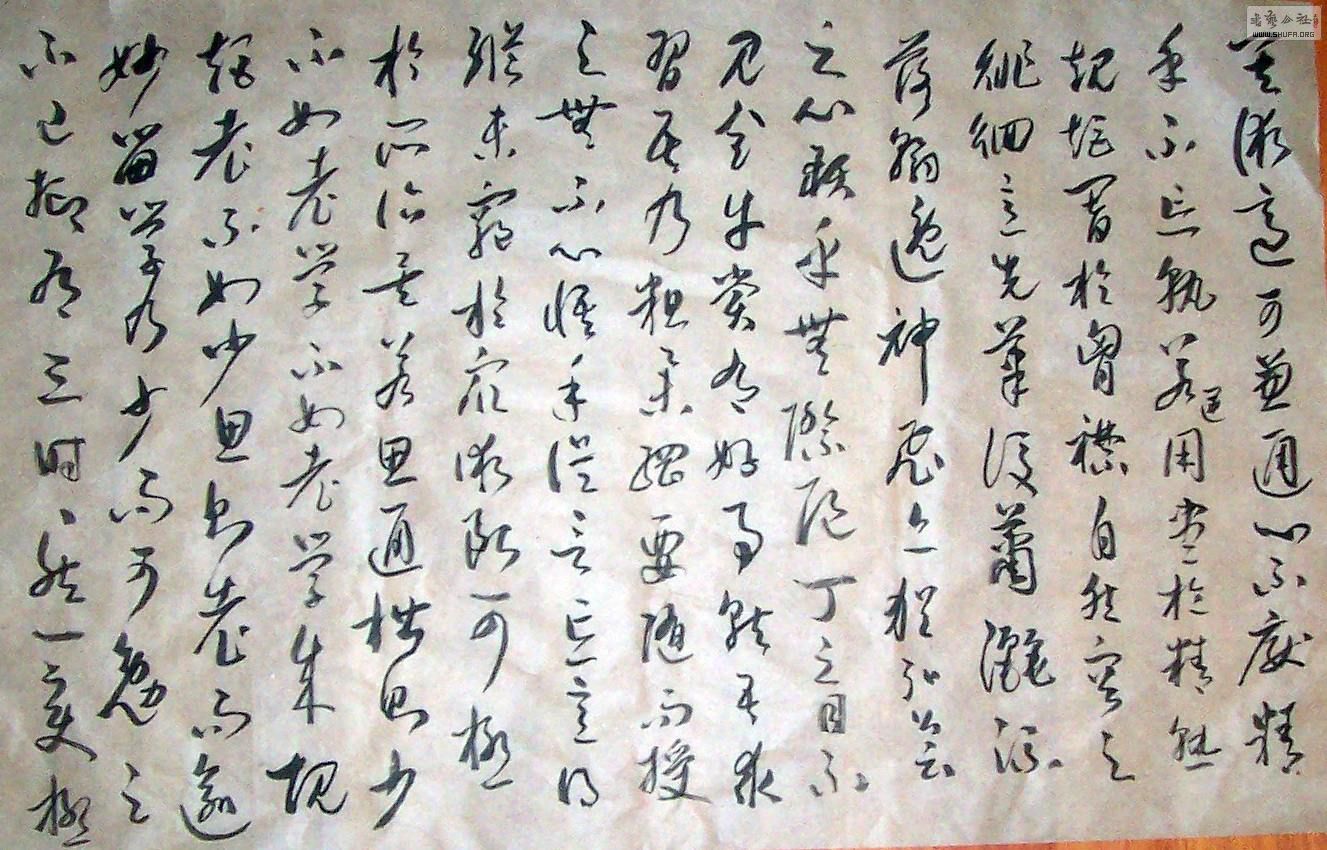 其術適可兼通心不厭精
手不忘熟若運用盡於精熟
規矩闇於胸襟自然容與
徘徊意先筆後瀟灑流
落翰逸神飛亦猶弘羊
之心預乎無際庖丁之目不
見全牛嘗有好事就吾求
習吾乃粗舉綱要隨而授
之無不心悟手從言忘意得
縱未窮於衆術斷可極
於所詣矣若思通楷則少
不如老學不如老學成規
矩老不如少思則老而逾
妙學乃少而可勉之
不已抑有三時時然一變極
書藝公社
WWW.SHUFA.ORG